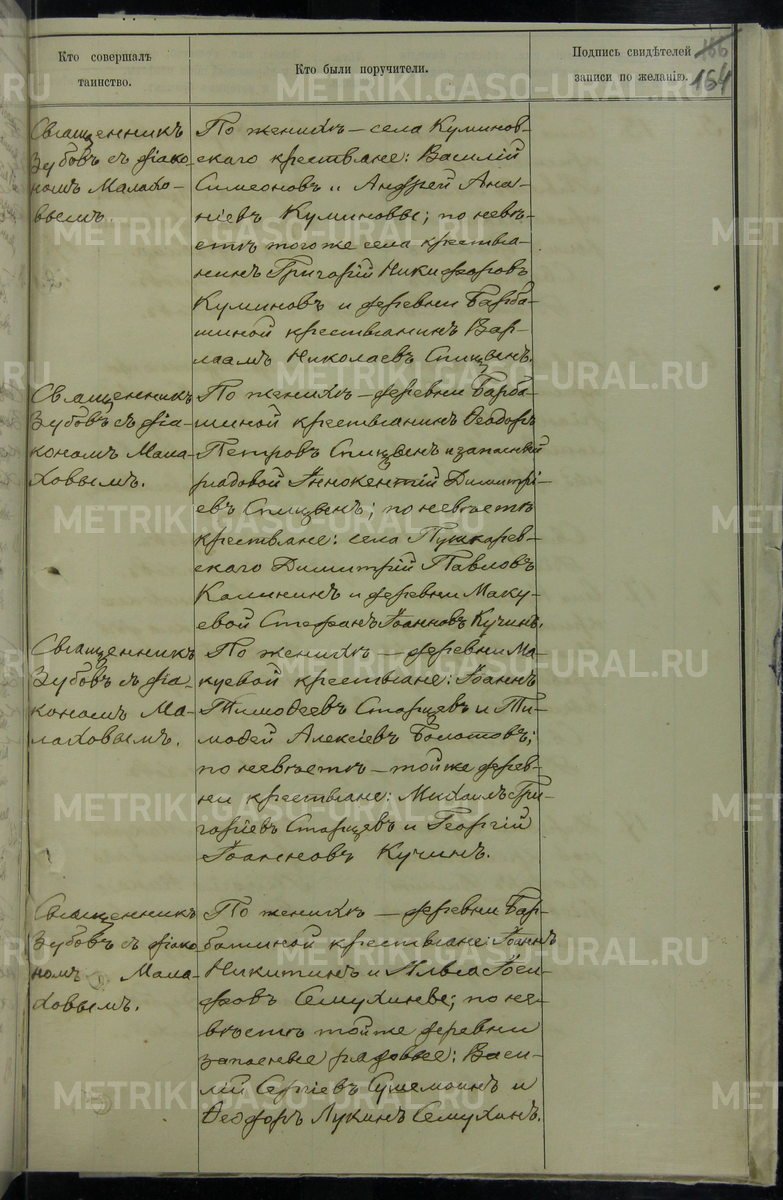 Кто совершалъ
таинство.
Кто были поручители.
Подпись свидѣтелей
записи по желанію.
166
164
Священникъ
Зубовъ съ діако-
номъ Малахо-
вымъ.
По женихѣ – села Куминов-
скаго крестьяне: Василій
Симеоновъ и Андрей Ана-
ніевъ Куминовы; по невѣ-
стѣ того же села крестья-
нинъ Григорій Никифоровъ
Куминовъ и деревни Барба-
шиной крестьянинъ Вар-
лаамъ Николаевъ Спицынъ.
Священникъ
Зубовъ съ діа-
кономъ Мала-
ховымъ.
По женихѣ – деревни Барба-
шиной крестьянинъ Ѳеодоръ
Петровъ Спицынъ и запасный
рядовой Іннокентій Димитрі-
евъ Спицынъ; по невѣстѣ
крестьяне: села Пушкарев-
скаго Димитрій Павловъ
Калининъ и деревни Маку-
евой Стефанъ Іоанновъ Кучинъ.
Священникъ
Зубовъ съ діа-
кономъ Ма-
лаховымъ.
По женихѣ – деревни Ма-
куевой крестьяне: Іоаннъ
Тимоѳеевъ Старцевъ и Ти-
моѳей Алексіевъ Болотовъ;
по невѣстѣ – той же дерев-
ни крестьяне: Михаилъ Гри-
горіевъ Старцевъ и Георгій
Іоанновъ Кучинъ.
Священникъ
Зубовъ съ діако-
номъ Мала-
ховымъ.
По женихѣ – деревни Бар-
башиной крестьяне: Іоаннъ
Никитинъ и Илья Іоси-
фовъ Семухины; по не-
вѣстѣ той же деревни
запасные рядовые: Васи-
лій Сергіевъ и
Ѳеодоръ Лукинъ Семухинъ.
METRIKI.GASO-URAL.RU